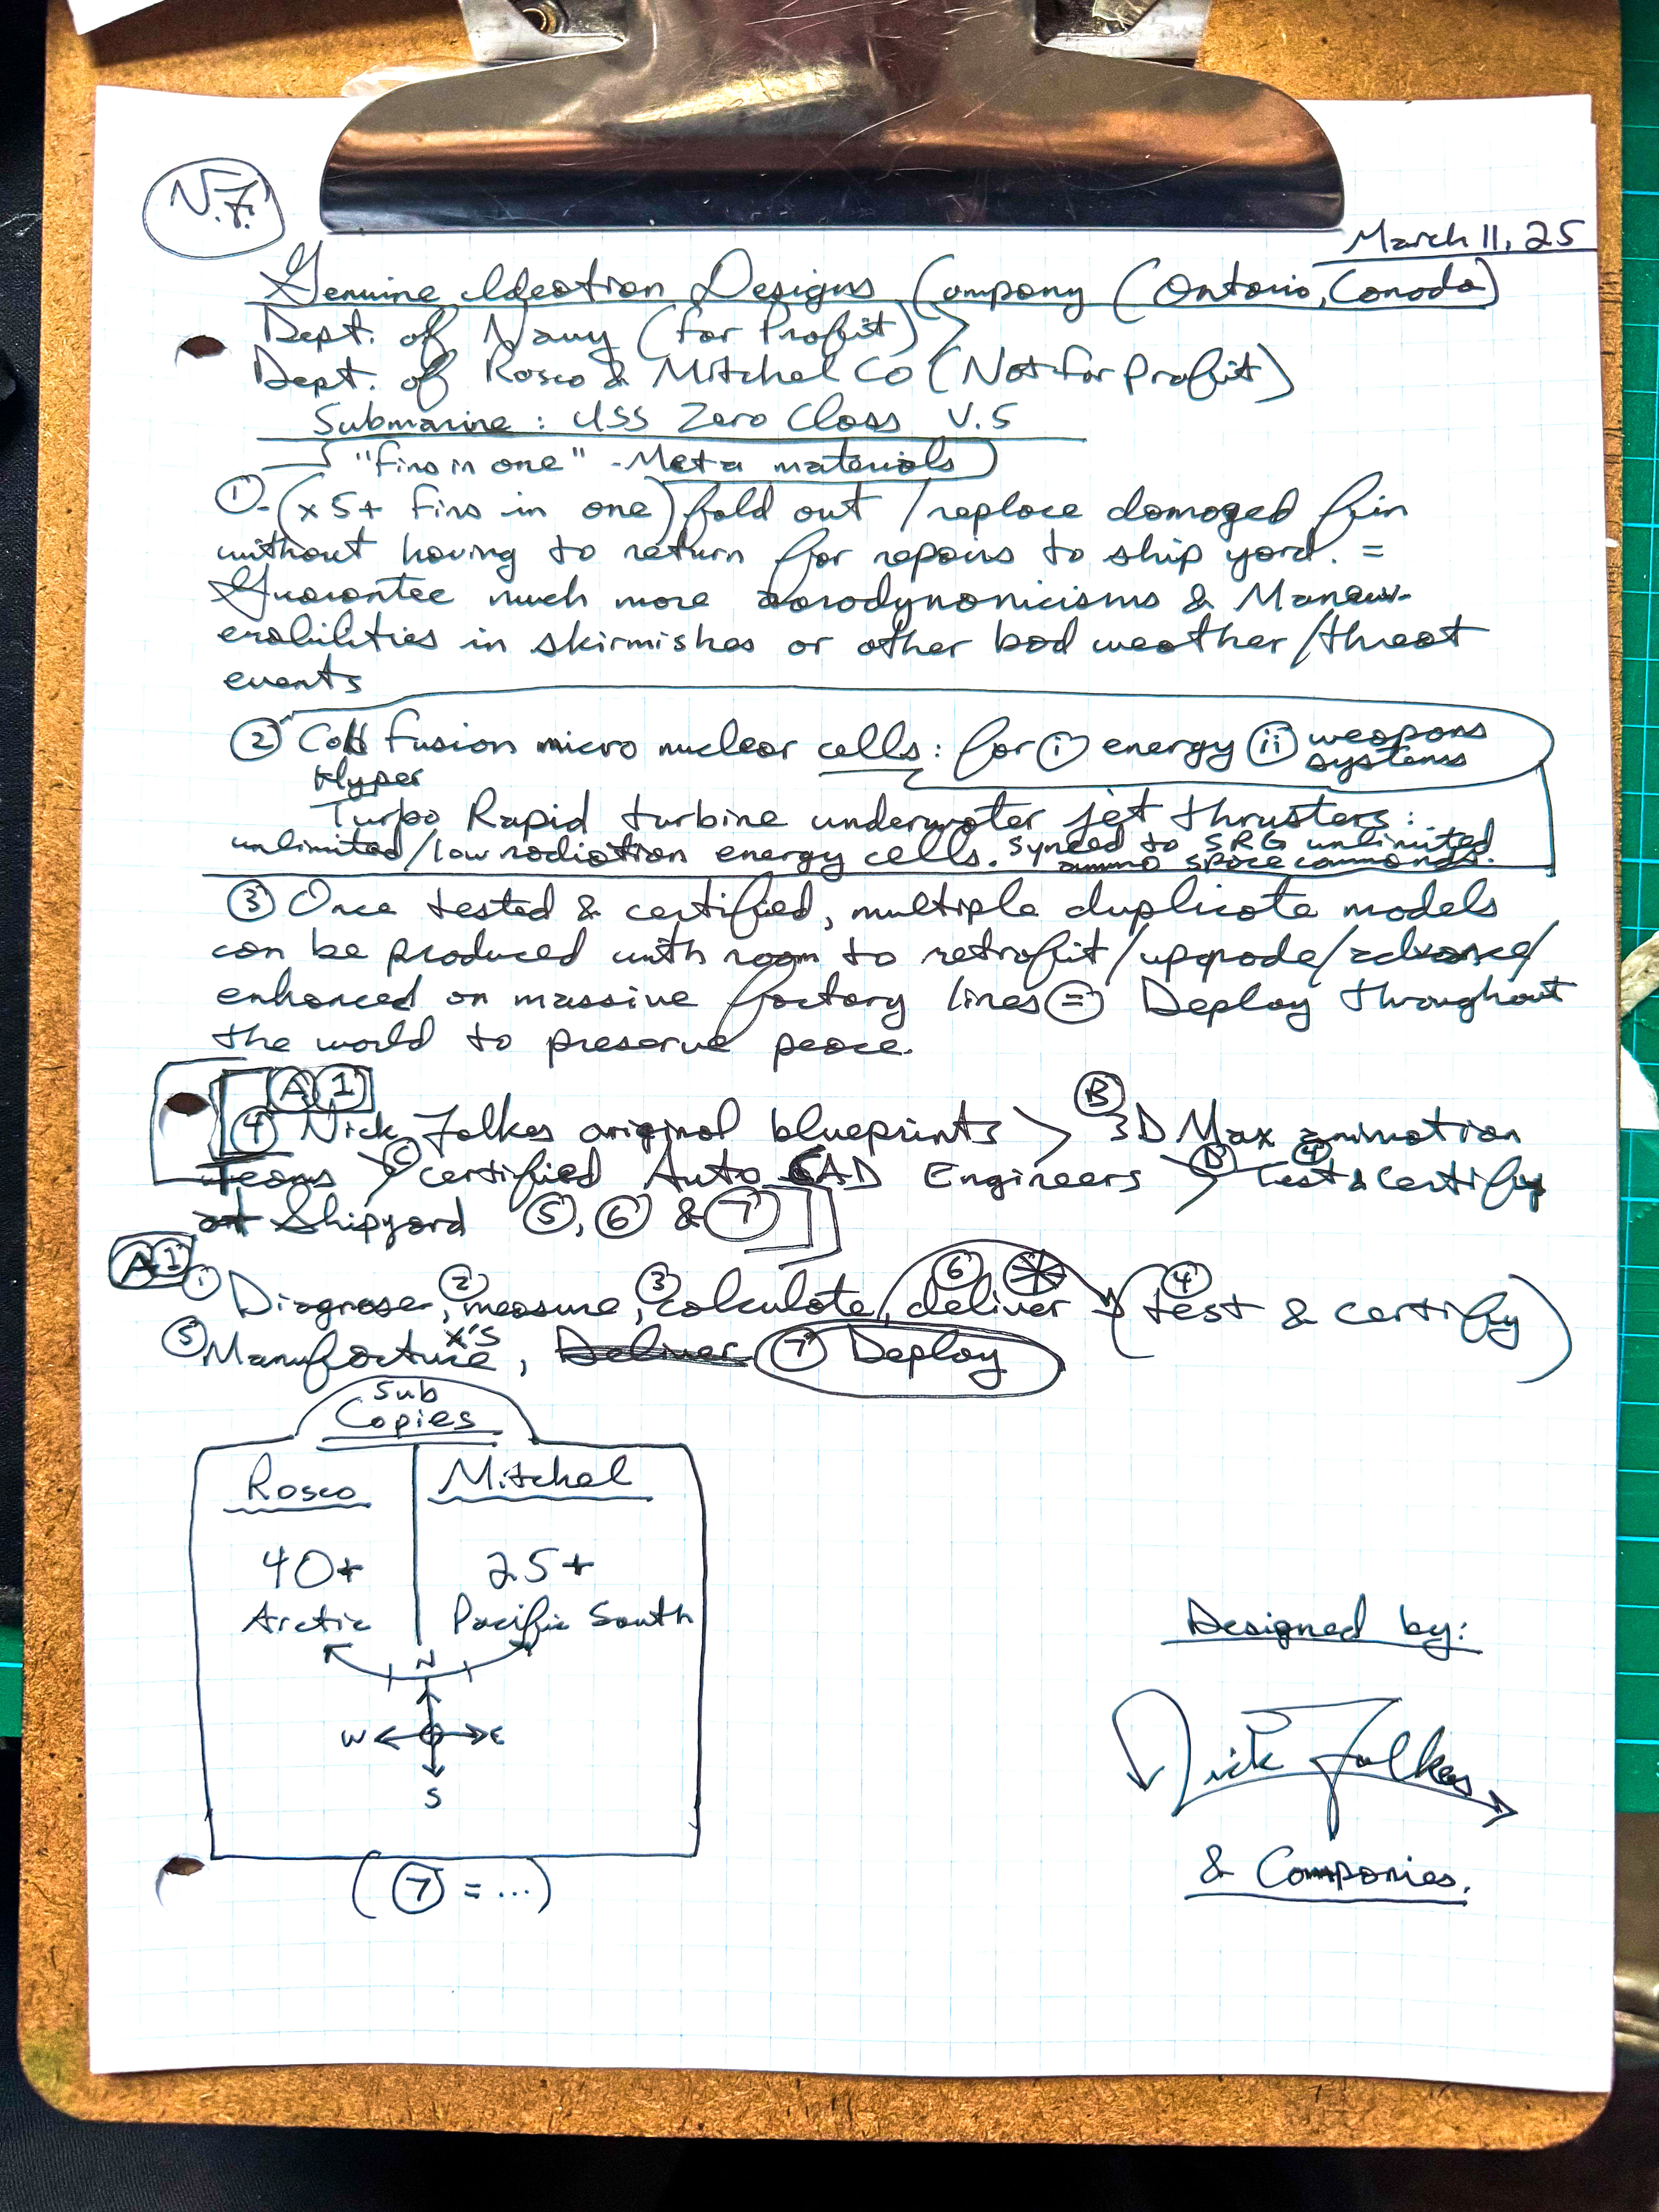 N.F.
March 11, 25
Genuine Ideation Designs Company (Ontario, Canada)
Dept. of Navy (for Profit) >
Dept. of Rosco & Mitchel Co (Not for Profit)
Submarine: USS Zero Class V.5
"fins in one" - Meta materials
①-(x5+ fins in one) fold out / replace damaged fin
without having to return for repairs to ship yard. =
Guarantee much more aarodynomicisms & Maneuv-
erabilities in skirmishes or other bad weather/threat
events
② Cold fusion micro nuclear cells: for ⓘ energy ⓘⓘ weapons systems
Hyper
Turbo Rapid turbine underwater jet thrusters:
unlimited/low radiation energy cells. synced to SRG unlimited
ammo space commands.
③ Once tested & certified, multiple duplicate models
can be produced with room to retrofit/upgrade/advance/
enhanced on massive factory lines = Deploy throughout
the world to preserve peace.
A 1
④ Nick Folkes original blueprints > Ⓑ 3D Max animation
teams > Ⓒ certified Auto CAD Engineers > Ⓓ ④ test & certify
at Shipyard ⑤, ⑥ & ⑦
A1 ① Diagnose, ② measure, ③ calculate, ⑥ deliver (④ test & certify)
⑤ Manufacture x's, Deliver ⑦ Deploy
Sub
Copies
Rosco Mitchel
40+ 25+
Arctic Pacific South
N
W E
S
(⑦ = ...)
Designed by:
Nick Folkes
& Companies.